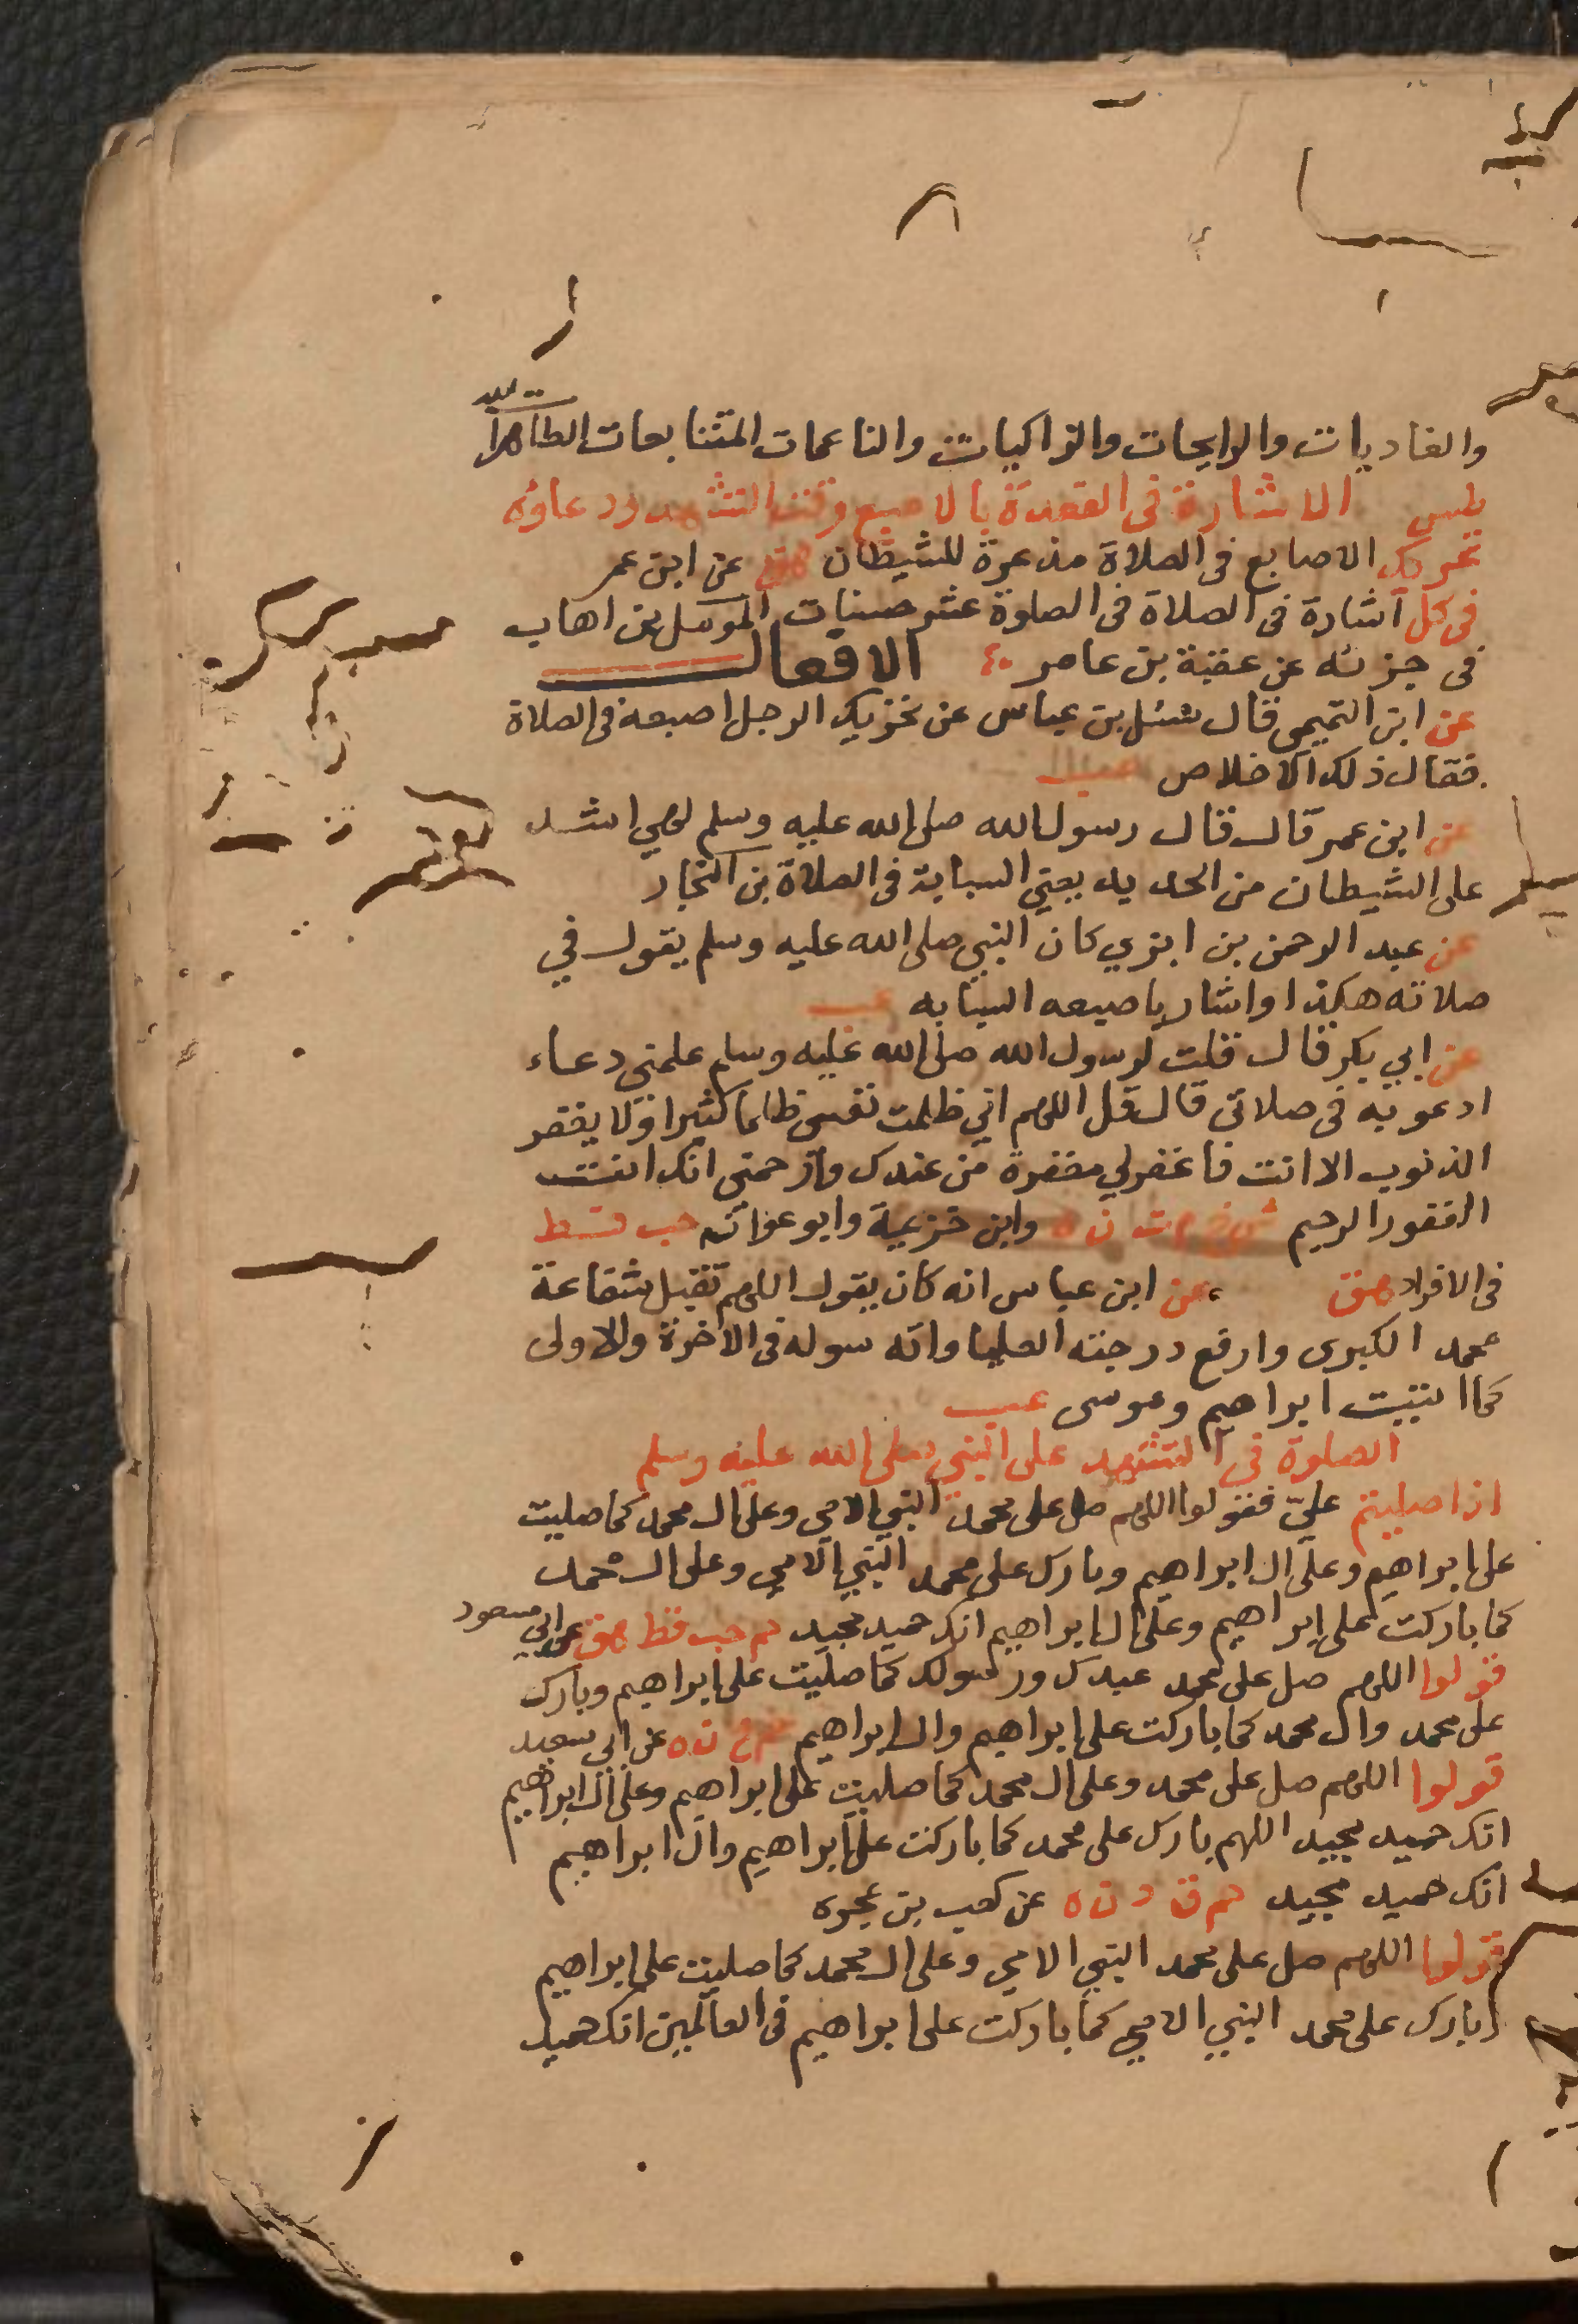 والغاديات والرايحات والزاكيات والناعمات المتتابعات الطاهرات لله
طس الاشارة فى القعدة بالاصبع وقت التشهد ودعاؤه
تحريك الاصابع فى الصلاة مذعرة للشيطان هق عن ابن عمر
فى كل اشارة فى الصلاة فى الصلوة عشر حسنات الموسل بن اهاب
فى جزئه عن عقبة بن عامر الافعال
عن ابن التميمى قال سئل بن عباس عن تحريك الرجل اصبعه فى الصلاة
فقال ذلك الاخلاص عب
عن ابن عمر قال قال رسول الله صلى الله عليه وسلم لهي اشد
على الشيطان من الحديد يعني السبابة فى الصلاة بن النجار
عن عبد الرحمن بن ابزي كان النبي صلى الله عليه وسلم يقول في
صلاته هكذا واشار باصبعه السبابه عب
عن ابي بكر قال قلت لرسول الله صلى الله عليه وسلم علمني دعاء
ادعو به فى صلاتى قال قل اللهم اني ظلمت نفسى ظلما كثيرا ولا يغفر
الذنوب الا انت فاغفر لي مغفرة من عندك وارحمنى انك انت
الغفور الرحيم ت ن ه وابن خزيمة وابو عوانه حب قط
فى الافراد هق عن ابن عباس انه كان يقول اللهم تقبل شفاعة
محمد الكبرى وارفع درجته العليا واته سوله فى الاخرة والاولى
كما اتيت ابراهيم وموسى عب
الصلوة فى التشهد على النبي صلى الله عليه وسلم
اذا صليتم عليّ فقولوا اللهم صل على محمد النبي الامي وعلى ال محمد كما صليت
على ابراهيم وعلى ال ابراهيم وبارك على محمد النبي الامي وعلى ال محمد
كما باركت على ابراهيم وعلى ال ابراهيم انك حميد مجيد حم حب قط هق عن ابي مسعود
قولوا اللهم صل على محمد عبدك ورسولك كما صليت على ابراهيم وبارك
على محمد وال محمد كما باركت على ابراهيم وال ابراهيم حم خ ن ه عن ابي سعيد
قولوا اللهم صل على محمد وعلى ال محمد كما صليت على ابراهيم وعلى ال ابراهيم
انك حميد مجيد اللهم بارك على محمد كما باركت على ابراهيم وال ابراهيم
انك حميد مجيد حم ق د ن ه عن كعب بن عجره
قولوا اللهم صل على محمد النبي الامي وعلى ال محمد كما صليت على ابراهيم
وبارك على محمد النبي الامي كما باركت على ابراهيم فى العالمين انك حميد